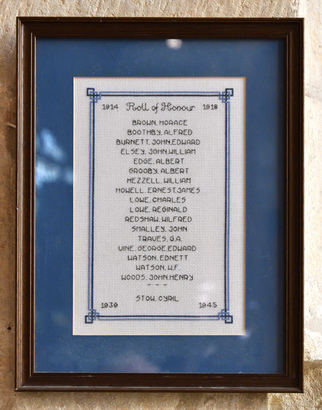 1914 Roll of Honour 1918
BROWN, HORACE
BOOTHBY, ALFRED
BURNETT, JOHN, EDWARD
ELSEY, JOHN, WILLIAM
EDGE, ALBERT
GROOBY, ALBERT
HEZZELL, WILLIAM
HOWELL, ERNEST, JAMES
LOWE, CHARLES
LOWE, REGINALD
REDSHAW, WILFRED
SMALLEY, JOHN
TRAVES, G.A.
VINE, GEORGE, EDWARD
WATSON, EDNETT
WATSON, W.F.
WOODS, JOHN, HENRY
- - -
STOW, CYRIL
1939 1945